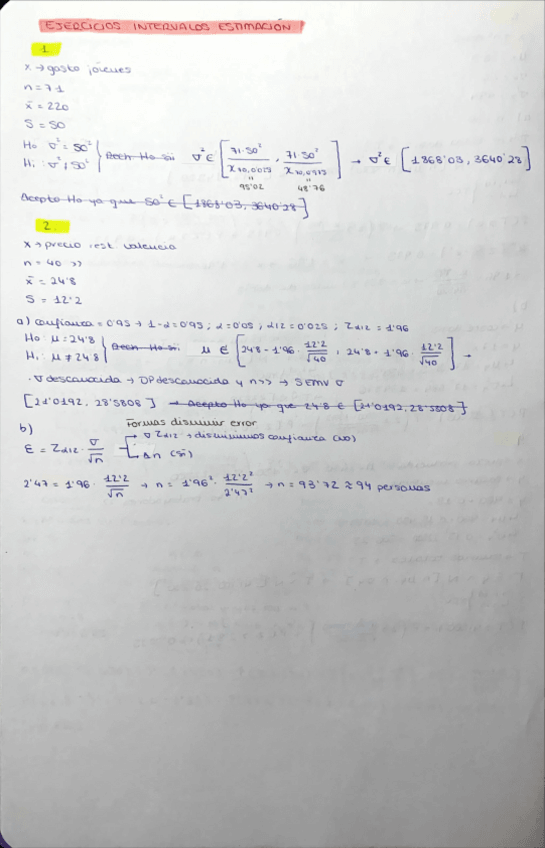 EJERCICIOS INTERVALOS ESTIMACIÓN
1.
x → gasto jóvenes
n = 71
x̄ = 220
S = 50
H₀ σ² = 50² } Rech H₀ si: σ² ∈ [71·50² / χ70,0'025, 71·50² / χ70,0'975] → σ² ∈ [1868'03, 3640'28]
H₁: σ² ≠ 50²
95'02 48'76
Acepto H₀ ya que 50² ∈ [1868'03, 3640'28]
2.
x → precio rest. valencia
n = 40 >>
x̄ = 24'8
S = 12'2
a) confianza = 0'95 → 1-α = 0'95; α = 0'05; α/2 = 0'025; Zα/2 = 1'96
H₀: μ = 24'8 } Rech H₀ si: μ ∈ [24'8 - 1'96 · 12'2/√40, 24'8 + 1'96 · 12'2/√40] →
H₁: μ ≠ 24'8
· σ desconocida → DP desconocida y n>> → S EMV σ
[21'0192, 28'5808] → Acepto H₀ ya que 24'8 ∈ [21'0192, 28'5808]
b)
Formas disminuir error
ε = Zα/2 · σ/√n
→ ∇ Zα/2 → disminuimos confianza (no)
→ Δn (sí)
2'47 = 1'96 · 12'2/√n → n = 1'96² · 12'2²/2'47² → n = 93'72 ≈ 94 personas